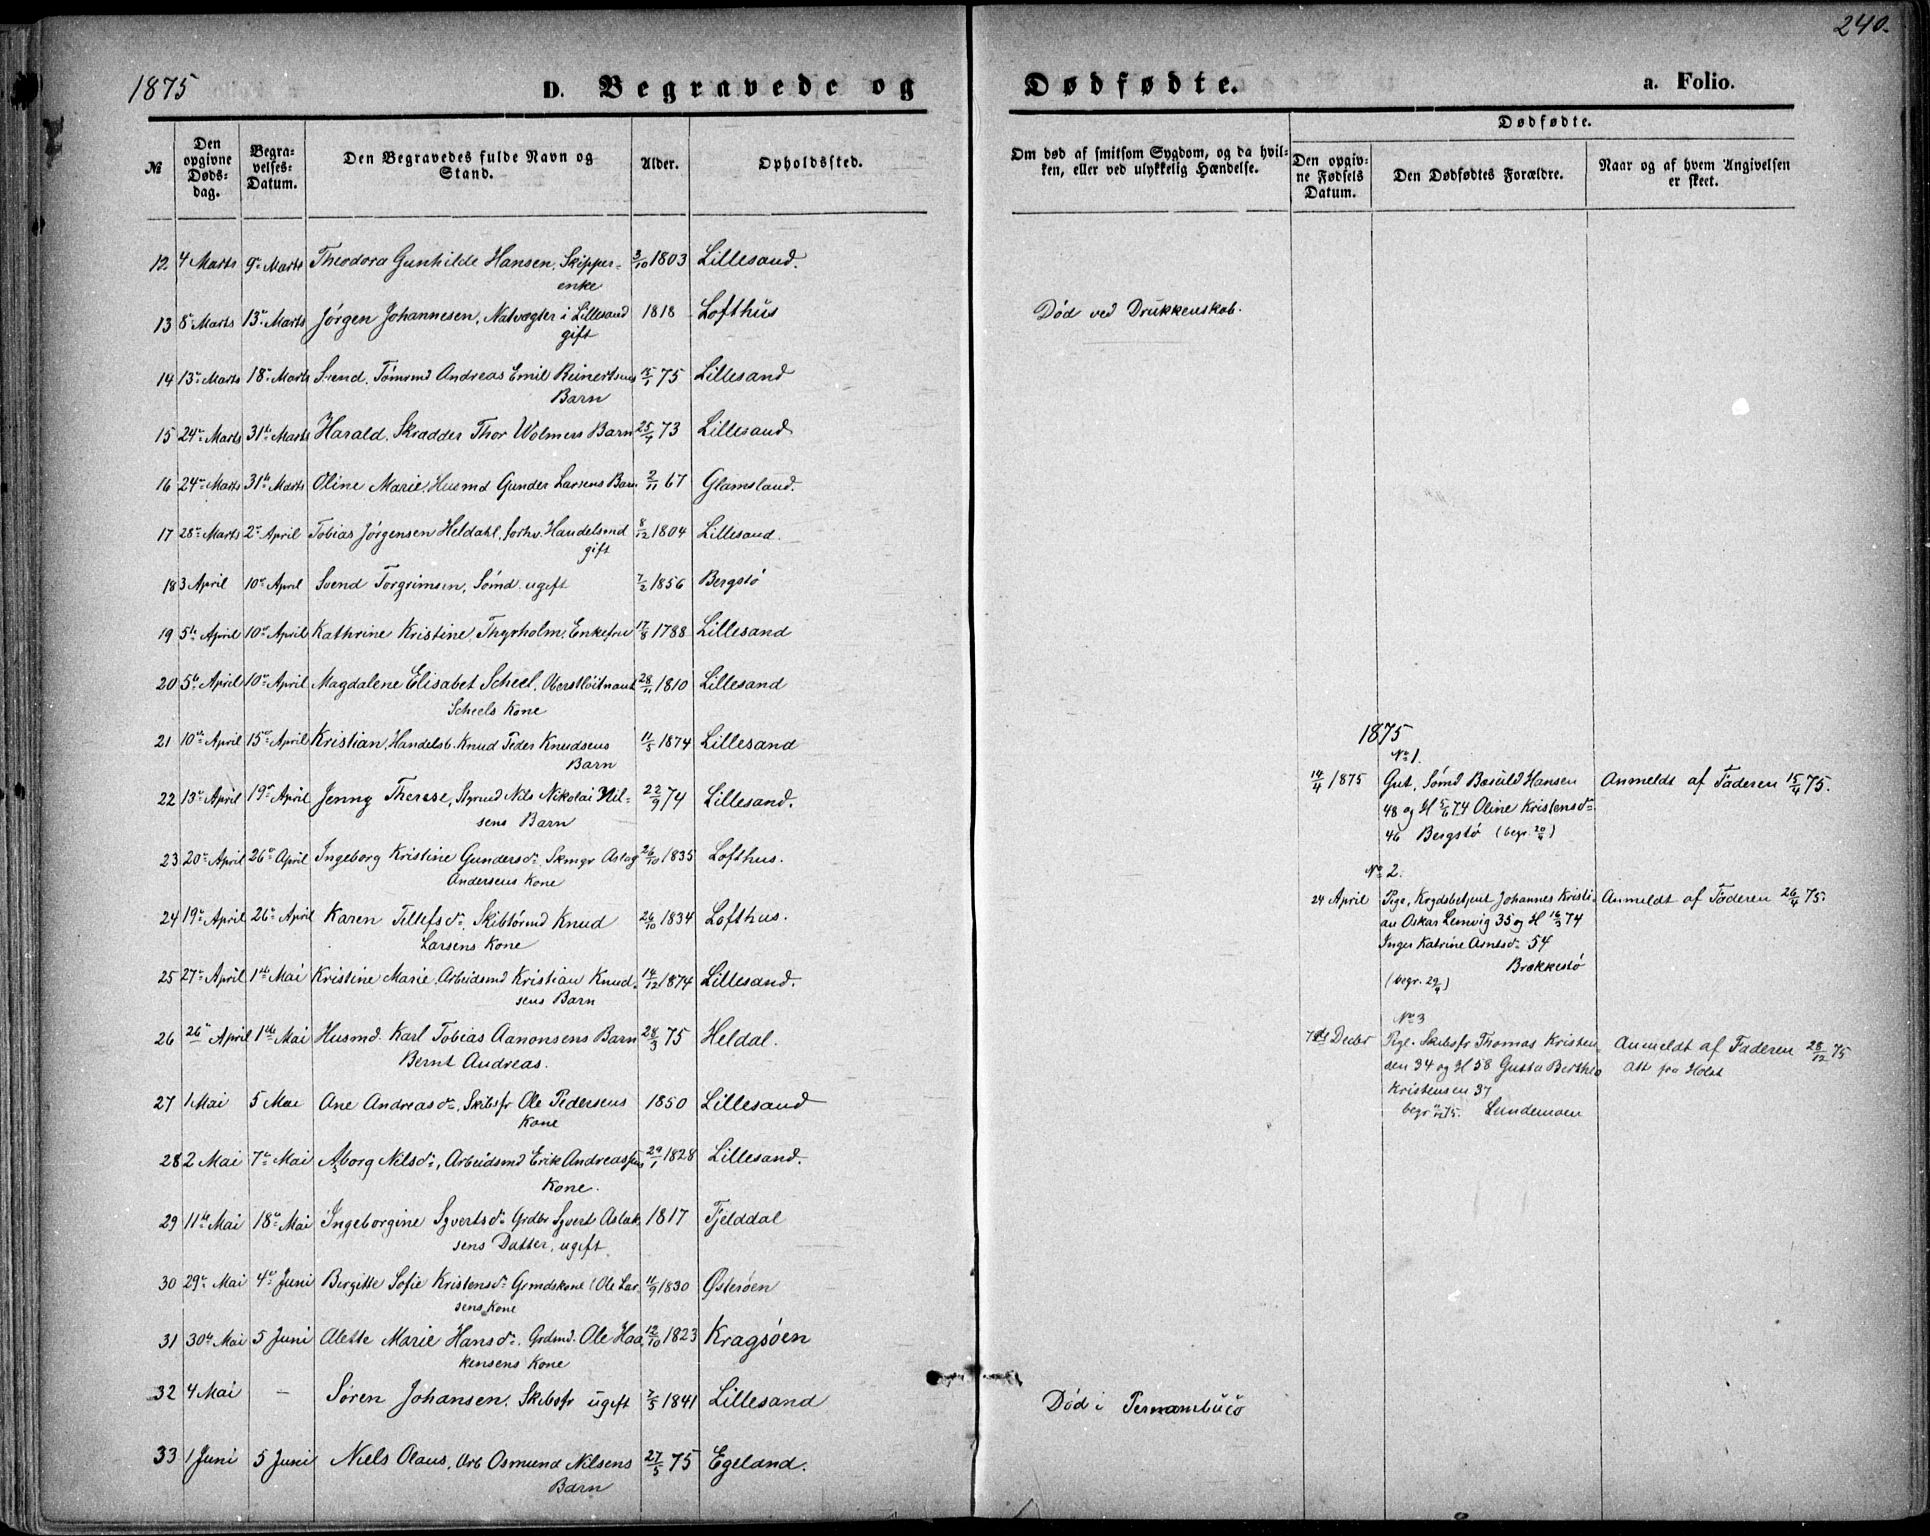 240.
1875
D. Begravede og Dødfødte. a. Folio.
№
Den opgivne Døds-dag.
Begra-velses-Datum.
Den Begravedes fulde Navn og Stand.
Alder.
Opholdssted.
Om død af smitsom Sygdom, og da hvil-
ken, eller ved ulykkelig Hændelse.
Dødfødte.
Den opgiv-ne Fødsels Datum.
Den Dødfødtes Forældre.
Naar og af hvem Angivelsen er skeet.
12 4 Marts 9de Marts Theodora Gunhilde Hansen, Skipper- 3/10 1803 Lillesand.
enke
13 8de Marts 13de Marts Jørgen Johannesen, Natvægter i Lillesand 1818 Lofthus Død ved Drukkenskab.
gift
14 13de Marts 18de Marts Svend, Tømrmd Andreas Emil Reinertsens 15/1 75 Lillesand
Barn
15 24de Marts 31te Marts Harald, Skrædder Thor Wolmers Barn 25/4 73 Lillesand
16 24de Marts 31te Marts Oline Marie, Husmd Gunder Larsens Barn 2/11 67 Glamsland.
17 28de Marts 2den April Tobias Jørgensen Heldahl, forhv. Handelsmd 8/12 1804 Lillesand.
gift
18 3 April 10de April Svend Torgrimsen, Sømd. ugift 7/2 1856 Bergstø
19 5te April 10de April Kathrine Kristine Thyrholm, Enkefru 17/8 1788 Lillesand
20 5te April 10de April Magdalene Elisabet Scheel, Oberstløitnant 28/11 1810 Lillesand
Scheels Kone
21 10de April 15de April Kristian, Handelsb. Knud Peder Knudsens 11/5 1874 Lillesand
Barn
22 13de April 19de April Jenny Therese, Styrmd Nils Nikolai Nil- 22/9 74 Lillesand.
sens Barn
23 20de April 26de April Ingeborg Kristine Gundersdr. Skmgr Aslag 26/10 1835 Lofthus.
Andersens Kone
24 19de April 26de April Karen Tellefsdr. Skibtørmd Knud 26/10 1834 Lofthus.
Larsens Kone
25 27de April 1ste Mai Kristine Marie, Arbeidsmd Kristian Knud- 14/12 1874 Lillesand.
sens Barn
26 26de April 1ste Mai Husmd. Karl Tobias Aanonsens Barn 28/3 75 Heldal.
Bernt Andreas.
27 1 Mai 5 Mai Ane Andreasdr., Skibsfr Ole Pedersens 1850 Lillesand
Kone
28 2 Mai 7de Mai Aborg Nilsdr., Arbeidsmd Erik Andreassens 29/1 1828 Lillesand.
Kone.
29 11te Mai 18de Mai Ingeborgine Syvertsdr. Grdbr Syvert Aslak- 1817 Fjelddal
sens Datter, ugift.
30 29de Mai 4de Juni Birgitte Sofie Kristensdr. Grmdskone (Ole Lar- 11/9 1830 Østerøen
sens Kone
31 30te Mai 5 Juni Alette Marie Hansdr. Grdmd. Ole Haa- 12/10 1823 Kragsøen
kensens Kone
32 4 Mai – Søren Johansen, Skibsfr ugift 7/5 1841 Lillesand Død i Pernambuco
33 1 Juni 5 Juni Niels Olaus, Arb Osmund Nilsens 27/5 75 Egeland.
Barn
1875
No 1.
14/4 1875 Gut, Sømd Hansen Anmeldt af Faderen 15/4 75.
48 og H 5/6 74 Oline Kristensdr.
46 Bergstø (begr. 20/4)
No 2.
24 April Pige, Krydsbetjent Johannes Kristi- Anmeldt af Faderen 26/4 75.
an Oskar Lemvig 35 og H 16/3 74
Inger Katrine Arntsdr. 54
Brekkestø
(begr. 29/4)
No 3
7de Decbr Pige. Skibsfr Thomas Kristen- Anmeldt af Faderen 28/12 75
sen 34 og H 58 Gusta Berthea Att fra Holst
Kristensen 37
begr 11/12 75. Lundemoen